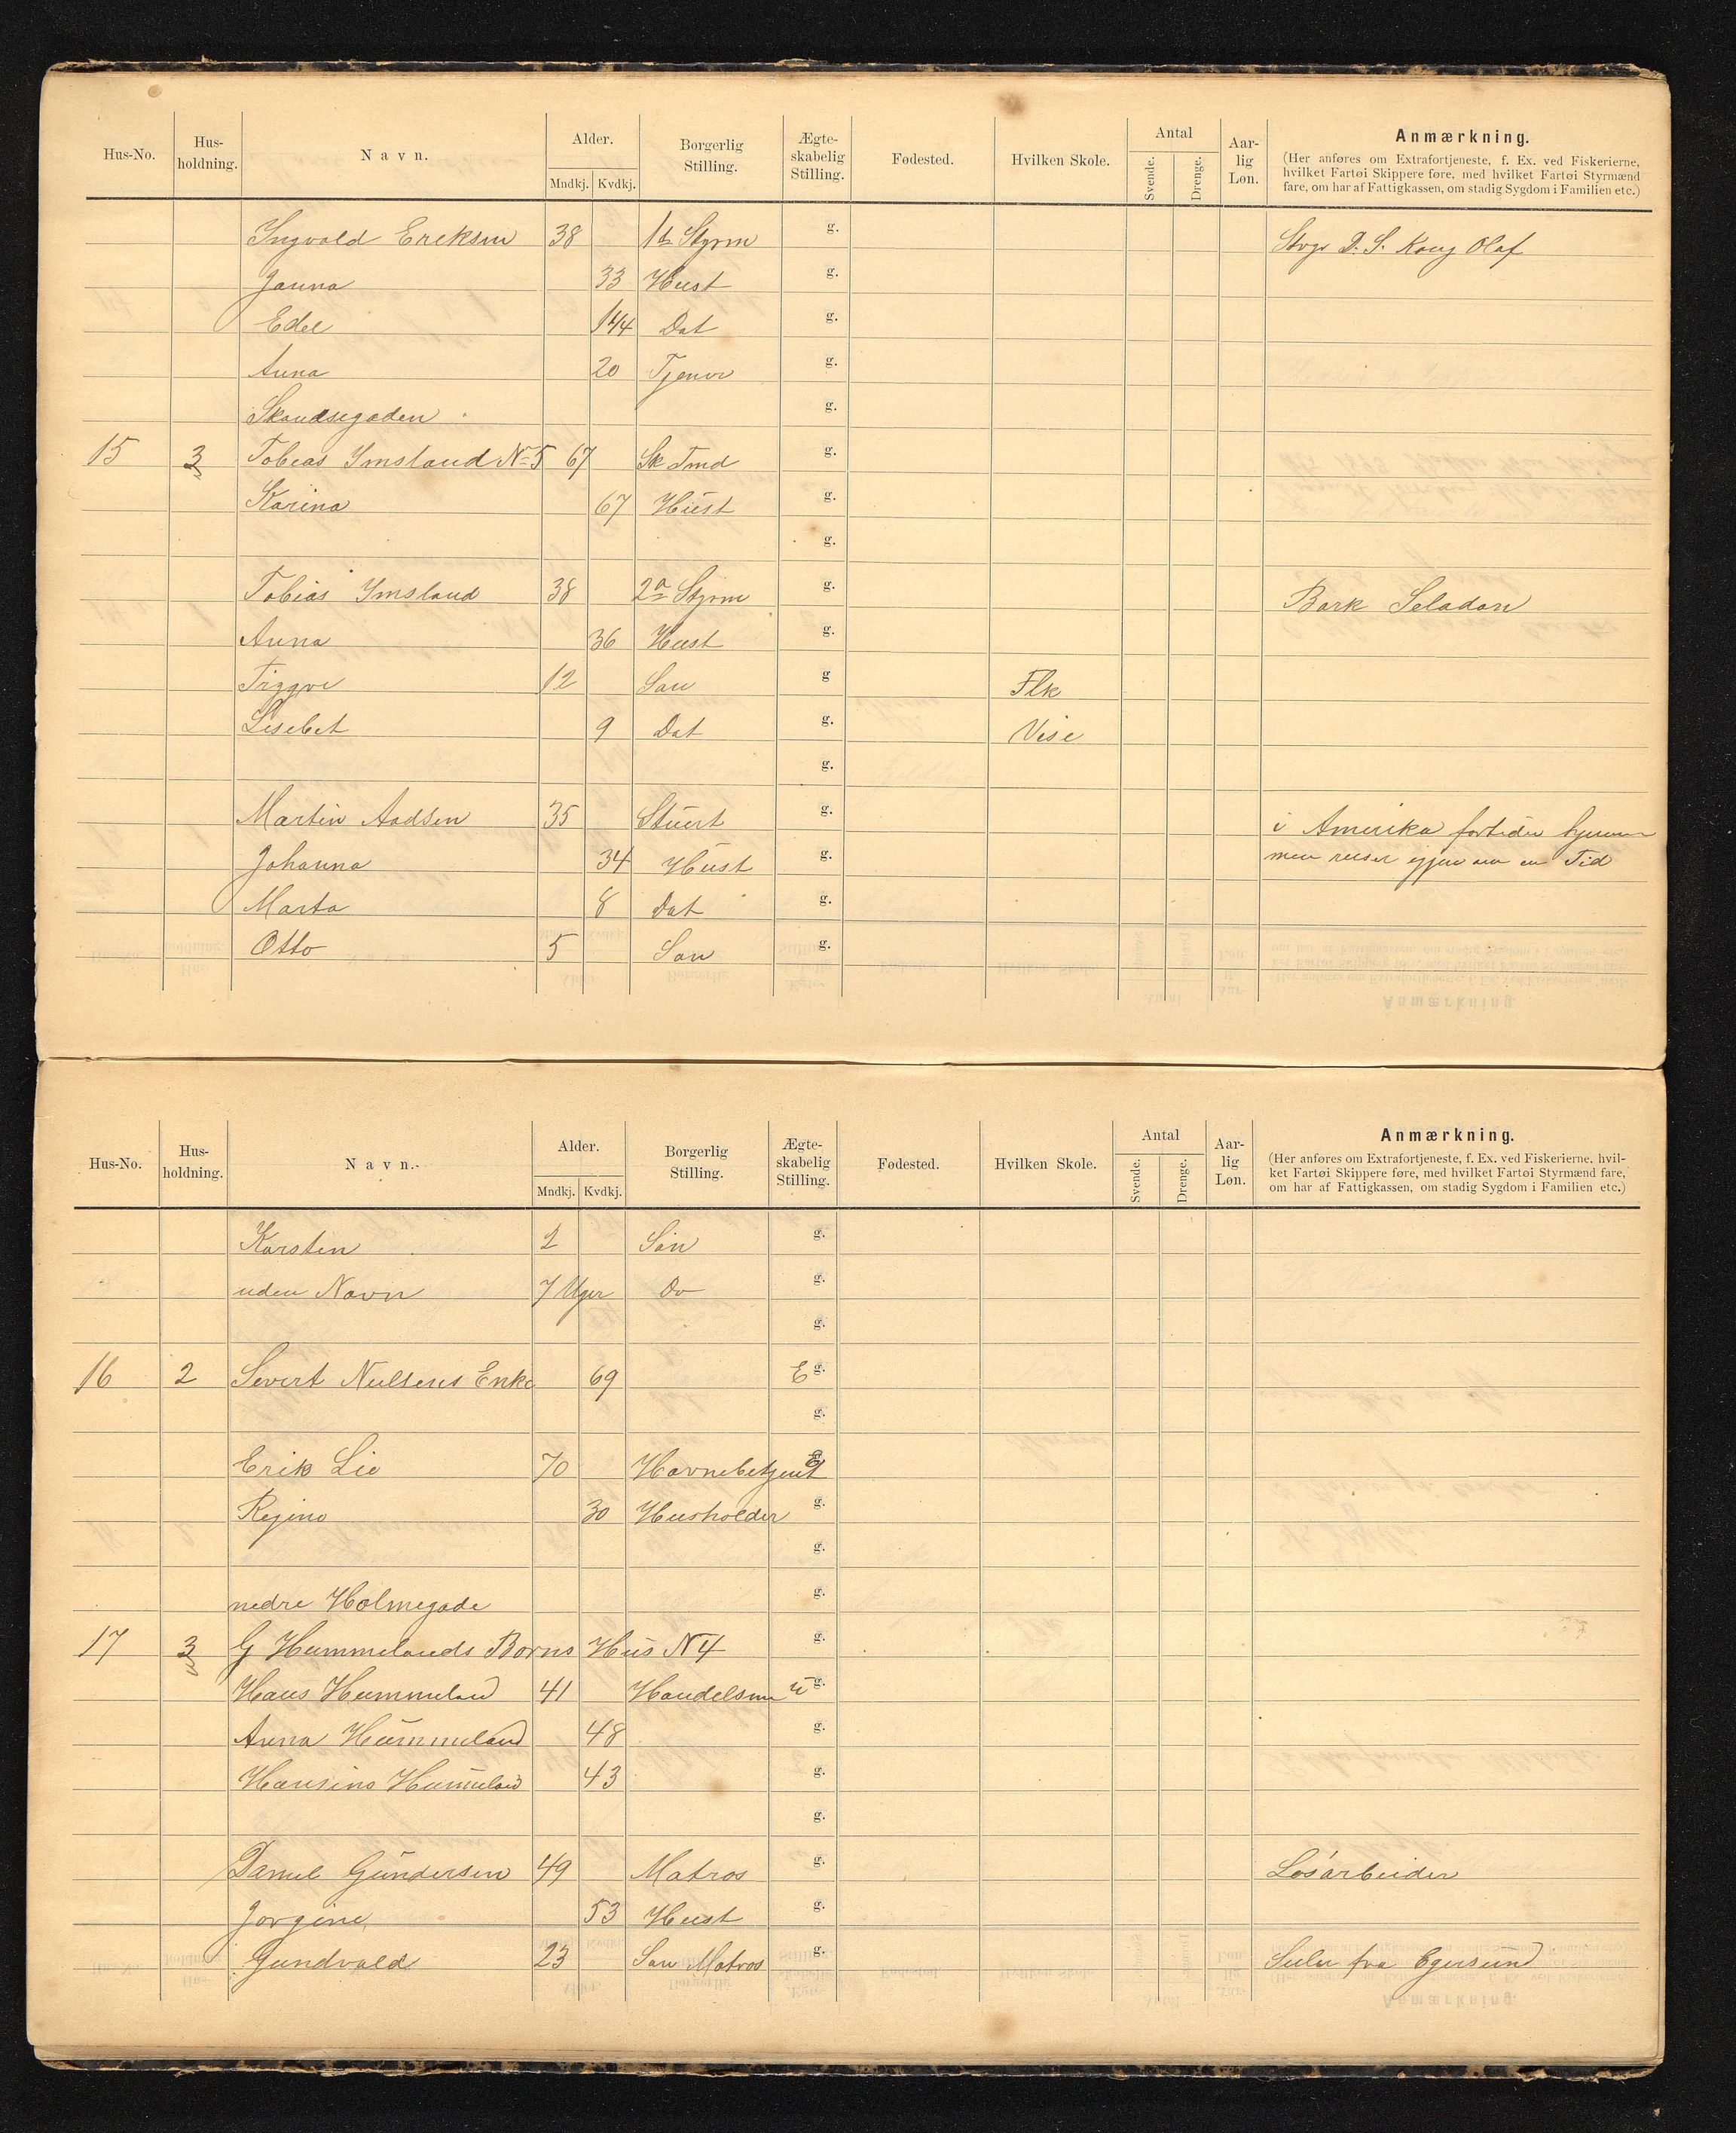 Hus-No. Hus-holdning. Navn. Alder. Mndkj. Kvdkj. Borgerlig Stilling. Ægte-skabelig Stilling. Fødested. Hvilken Skole. Antal Svende. Drenge. Aar-lig Løn. Anmærkning.
(Her anføres om Extrafortjeneste, f. Ex. ved Fiskerierne,
hvilket Fartøi Skippere føre, med hvilket Fartøi Styrmænd
fare, om har af Fattigkassen, om stadig Sygdom i Familien etc.)
Ingvald Eriksen 38 1ste Styrm g. Stvgr D. S. Kong Olaf
Janna 33 Hust g.
Edel 1 1/4 Dat g.
Anna 20 Tjener g.
Skandsegaden g.
15 3 Tobias Ymsland No 5 67 Sk Tmd g.
Karina 67 Hust g.
g.
Tobias Ymsland 38 2den Styrm g. Bark Seladon
Anna 36 Hust g.
Tryggve 12 Søn g Flk
Lisebet 9 Dat g. Vise
g.
Martin Aadsen 35 Stuert g. i Amerika fortiden hjemme
Johanna 34 Hust g. men reiser igjen om en Tid
Marta 8 Dat g.
Otto 5 Søn g.
Hus-No. Hus-holdning. Navn. Alder. Mndkj. Kvdkj. Borgerlig Stilling. Ægte-skabelig Stilling. Fødested. Hvilken Skole. Antal Svende. Drenge. Aar-lig Løn. Anmærkning.
(Her anføres om Extrafortjeneste, f. Ex. ved Fiskerierne, hvil-
ket Fartøi Skippere føre, med hvilket Fartøi Styrmænd fare,
om har af Fattigkassen, om stadig Sygdom i Familien etc.)
Karsten 2 Søn g.
uden Navn 7 Uger Do g.
g.
16 2 Sivert Nielsens Enke 69 E g.
g.
Erik Lie 70 Havnebetjent E
Regine 30 Husholder g.
g.
nedre Holmegade g.
17 3 G Hummelands Børns Hus N 4 g.
Hans Hummeland 41 Handelsm u g.
Anna Hummeland 48 g.
Hansine Hummeland 43 g.
g.
Daniel Gundersen 49 Matros g. Løsarbeider
Jorgine 53 Hust g.
Gundvald 23 Søn Matros g. Seiler fra Egersund